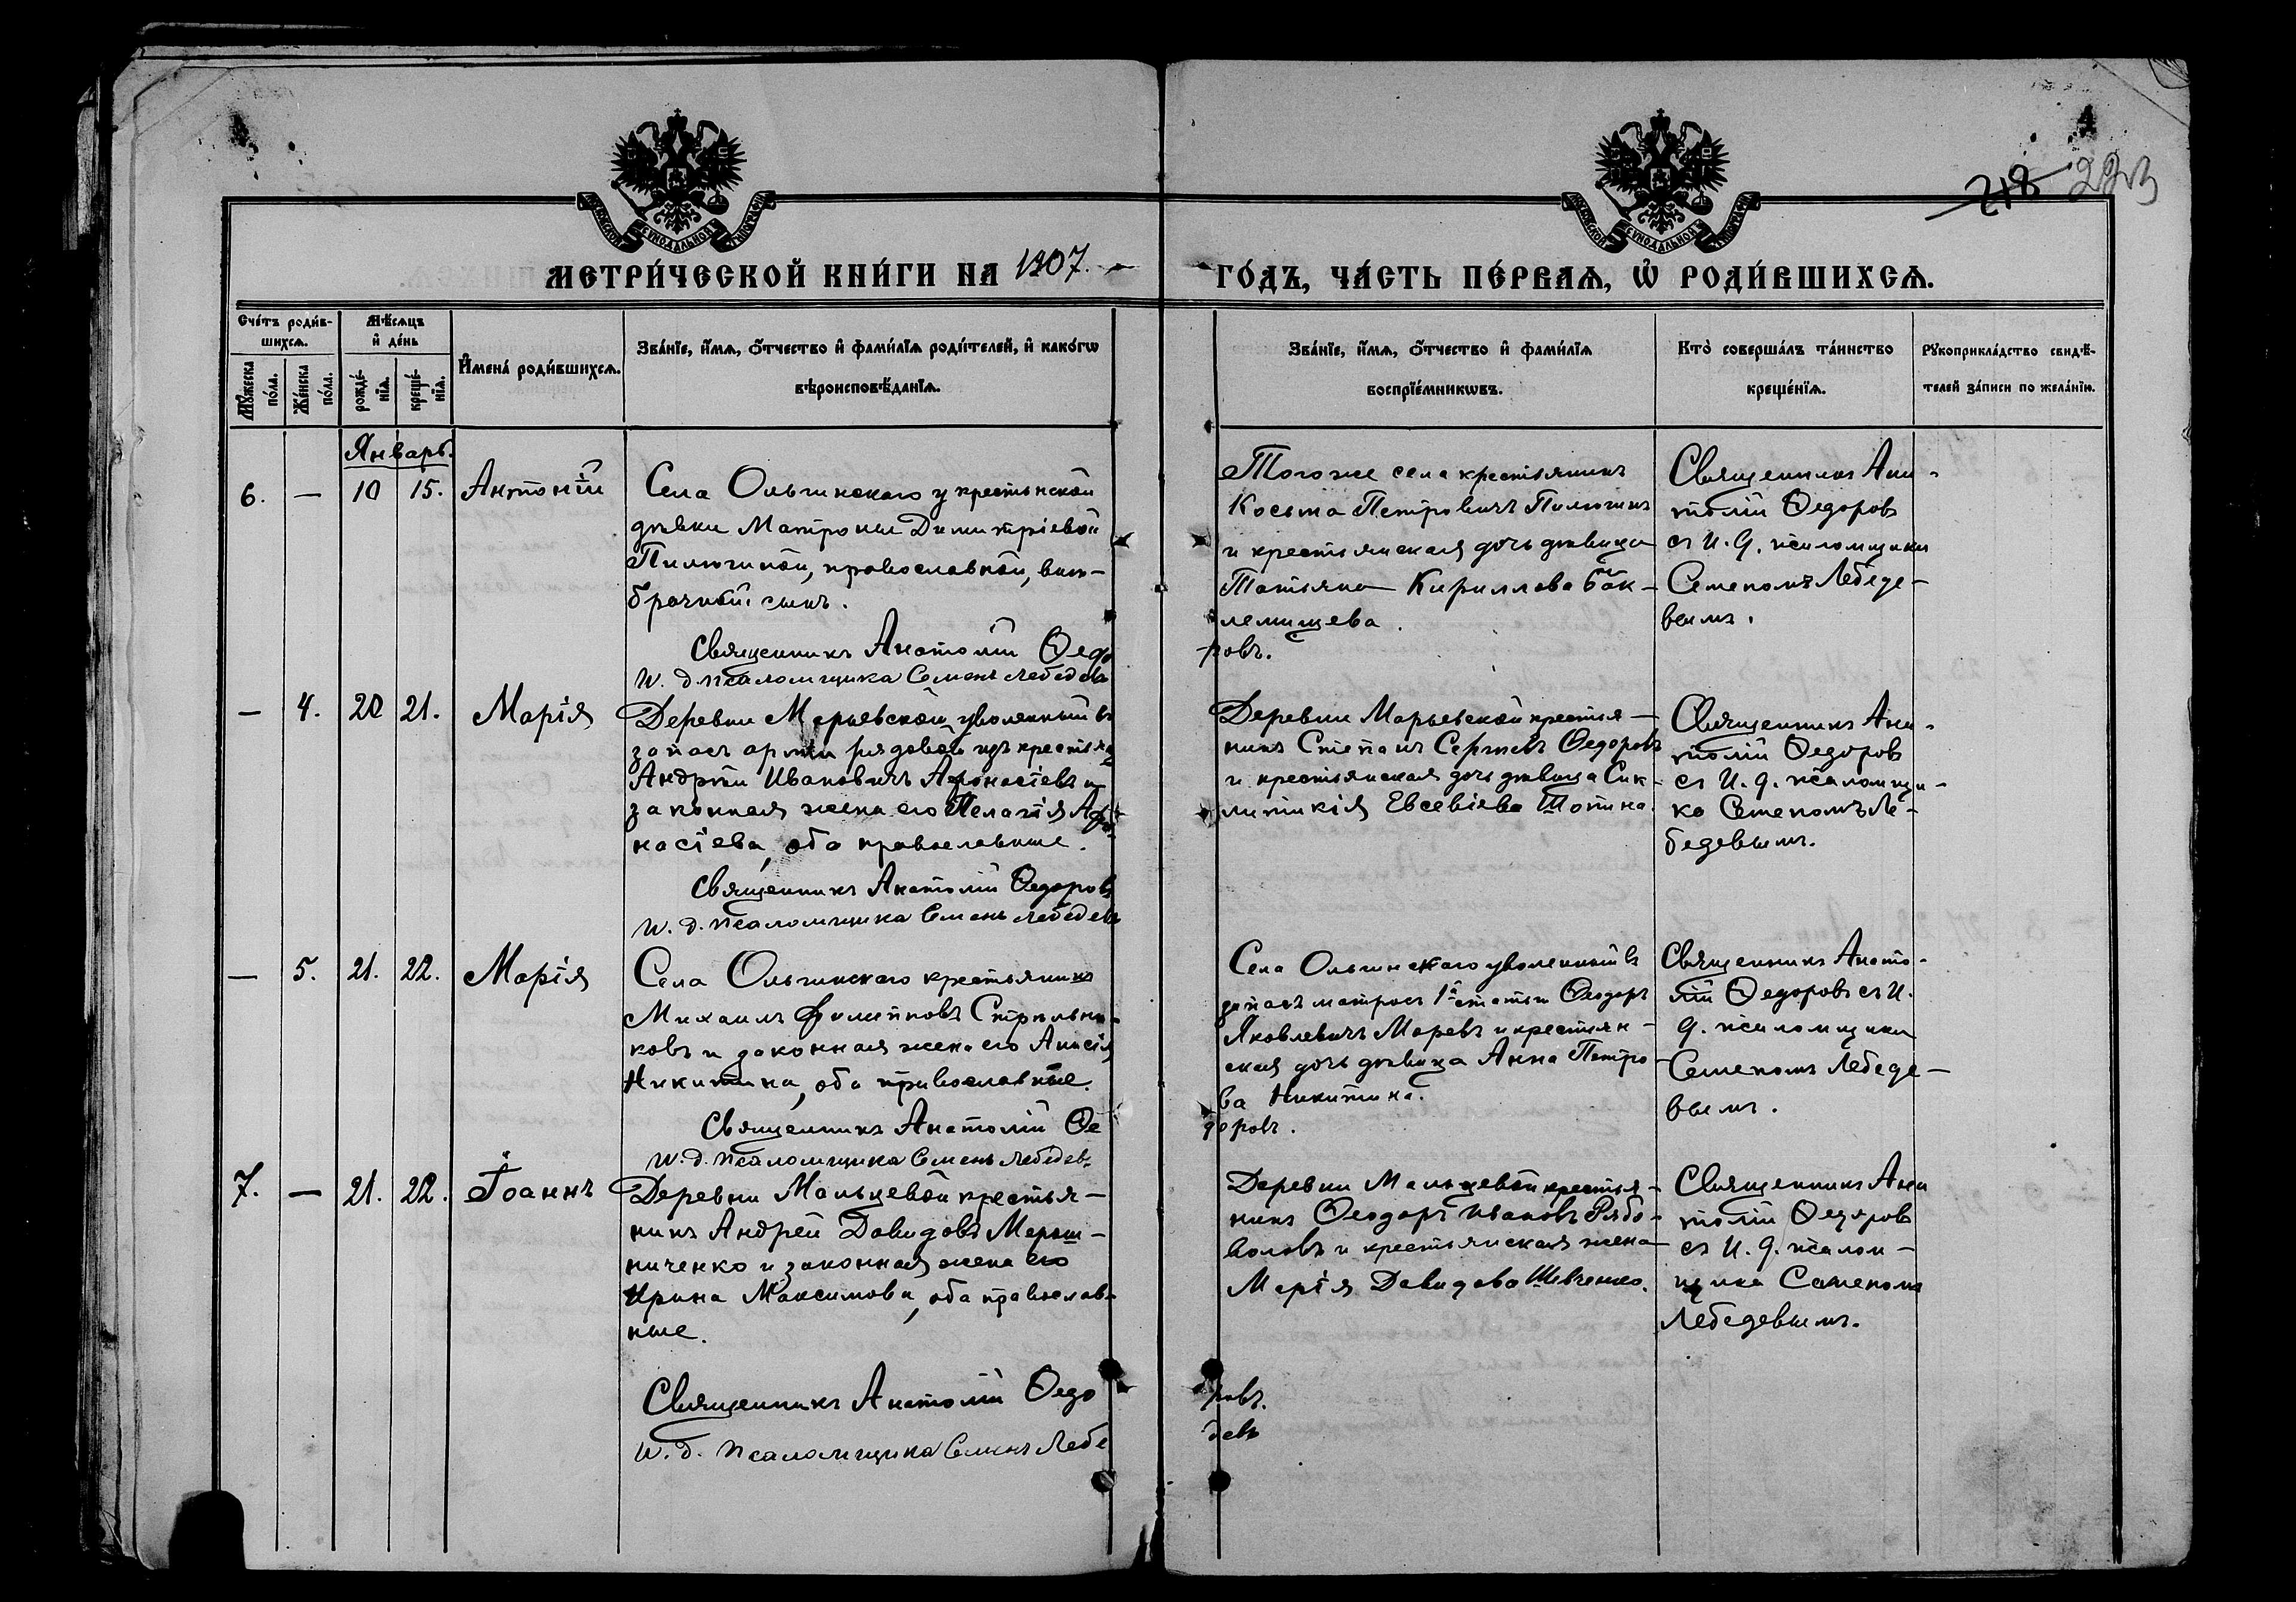 218
МЕТРИ́ЧЕСКОЙ КНИ́ГИ НА 1907.
ГО́ДЪ, ЧА́СТЬ ПЕ́РВАѦ, Ѽ РОДИ́ВШИХСѦ.
Сче́тъ роди́в-
шихсѧ.
Мѣ́сѧцъ
и҆ де́нь
Мꙋ́жеска
по́ла.
Же́нска
по́ла.
рожде́-
нїѧ.
креще́-
нїѧ.
И҆мена̀ роди́вшихсѧ.
Зва́нїе, и҆́мѧ, ѻ҆́тчество и҆ фами́лїѧ роди́телей, и҆ како́гѡ
вѣроисповѣ́данїѧ.
Зва́нїе, и҆́мѧ, ѻ҆́тчество и҆ фами́лїѧ
воспрїе́мникѡвъ.
Кто̀ соверша́лъ та́инство
креще́нїѧ.
Рꙋкоприкла́дство свидѣ́-
телей за́писи по жела́нїю.
Январь.
6. — 10 15. Антоній
Села Ольгинскаго у крестьнской
дѣвки Матроны Димитріевой
Пилюгиной, православной, внѣ-
брачный сынъ.
Священникъ Анатолій Ѳедо
И. д. псаломщика Семенъ Лебедевъ
Того же села крестьянинъ
Косьма Петровичъ Пилюгинъ
и крестьянская дочь дѣвица
Татьяна Кириллова Бак-
лемищева.
ровъ.
Священникъ Ана-
толій Ѳедоровъ
съ И. д. псаломщика
Семеномъ Лебеде-
вымъ.
— 4. 20 21. Марія
Деревни Марьевской уволенный въ
запасъ арміи рядовой изъ крестьянъ
Андрей Ивановичъ Афонасіевъ и
законная жена его Пелагія Афо-
насіева, оба православные.
Священникъ Анатолій Ѳедоровъ
И. д. псаломщика Семенъ Лебедевъ
Деревни Марьевской крестья-
нинъ Степанъ Сергѣевъ Ѳедоровъ
и крестьянская дочь дѣвица Син-
литикія Евсевіева Шотина.
Священникъ Ана-
толій Ѳедоровъ
съ И. д. псаломщи-
ка Семеномъ Ле-
бедевымъ.
— 5. 21. 22. Марія
Села Ольгинскаго крестьянинъ
Михаилъ Филипповъ Стрѣльни-
ковъ и законная жена его Анисія
Никитина, оба православные.
Священникъ Анатолій Ѳе
И. д. псаломщика Семенъ Лебедевъ
Села Ольгинскаго уволенный въ
запасъ матросъ 1й статьи Ѳеодоръ
Яковлевичъ Маревъ и крестьян-
ская дочь дѣвица Анна Петро-
ва Никитина.
доровъ.
Священникъ Анато-
лій Ѳедоровъ съ И.
д. псаломщика
Семеномъ Лебеде-
вымъ.
7. — 21. 22. Іоаннъ
Деревни Мальцевой крестья-
нинъ Андрей Давидовъ Мерош-
ниченко и законная жена его
Ирина Максимова, оба православ-
ные.
Священникъ Анатолій Ѳедо
И. д. псаломщика Семенъ Лебе
Деревни Мальцевой крестья-
нинъ Ѳеодоръ Ивановъ Рябо-
воловъ и крестьянская жена
Марія Давидова Шевченко.
ровъ.
девъ
Священникъ Ана
толій Ѳедоровъ
съ И. д. псалом-
щика Семеномъ
Лебедевымъ.